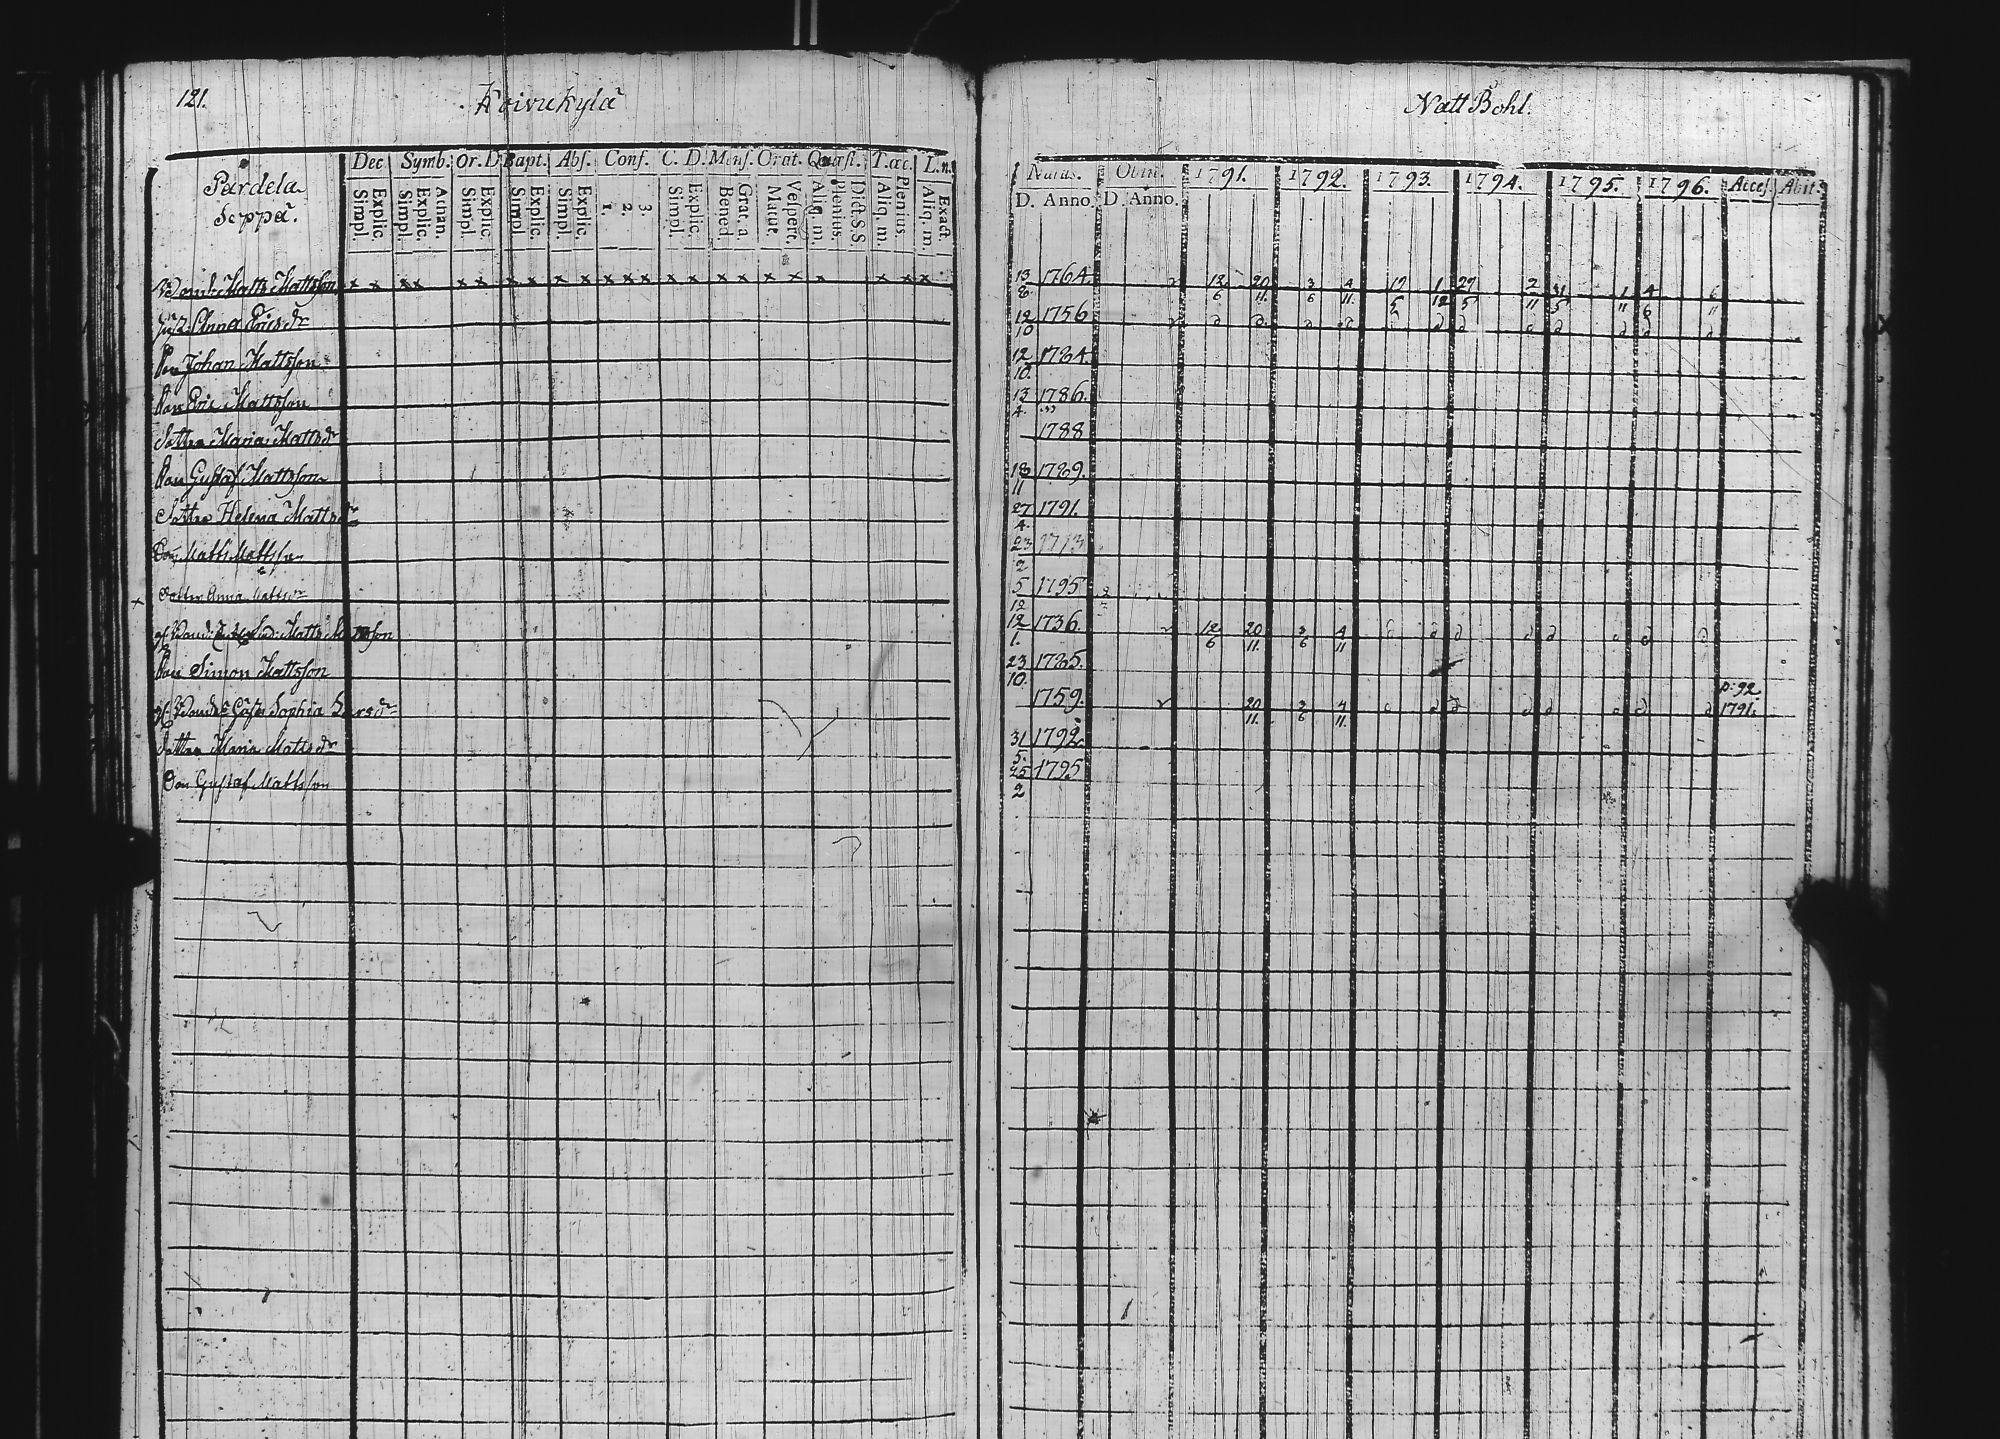 121. Koivukylä Natt Bohl.
Pardela
Seppä.
Dec. Symb. Or. D Bapt. Abs. Conf. C. D. Mens. Orat. Quæst. T. œc. L. n.
Simpl. Explic. Simpl. Explic. Athan. Simpl. Explic. Simpl. Explic. Simpl. Explic. 1. 2. 3. Simpl. Explic. Bened. Grat. a. Matut. Vespert. Aliq. m. Plenius. Dict. S. S Aliq. m. Plenius. Aliq. m. Exact.
Obiit. 1791. 1792. 1793. 1794. 1795. 1796. Access. Abit.
D. Anno. D. Anno.
Matts Mattsson x x x x x x x x x x x x x x x x x x x x x x x 13/8 1764. 12/6 20/11. 3/6 4/11. 1/12 2/11
Anna Ericsdr 12/10 1756
Son Johan Mattsson 12/10. 1784.
Son Eric Mattsson 13/4. 1786.
Dotter Maria Mattsdr 1788
Son Gustaf Mattsson 18/11 1789.
Dotter Helena Mattsdr 27/4. 1791.
Son Matts Mattsson 23/2
Dotter Anna Mattsdr 5/12 1795
Matts Mattsson 12/1. 1736. 12/6 20/11. 3/6 4/11
Son Simon Mattsson 23/10. 1785.
Sophia 1759. 20/11. 3/6 4/11. p: 92 1791.
Dotter Maria Mattsdr 31/5. 1792.
Son Gustaf Mattsson 25/2 1795